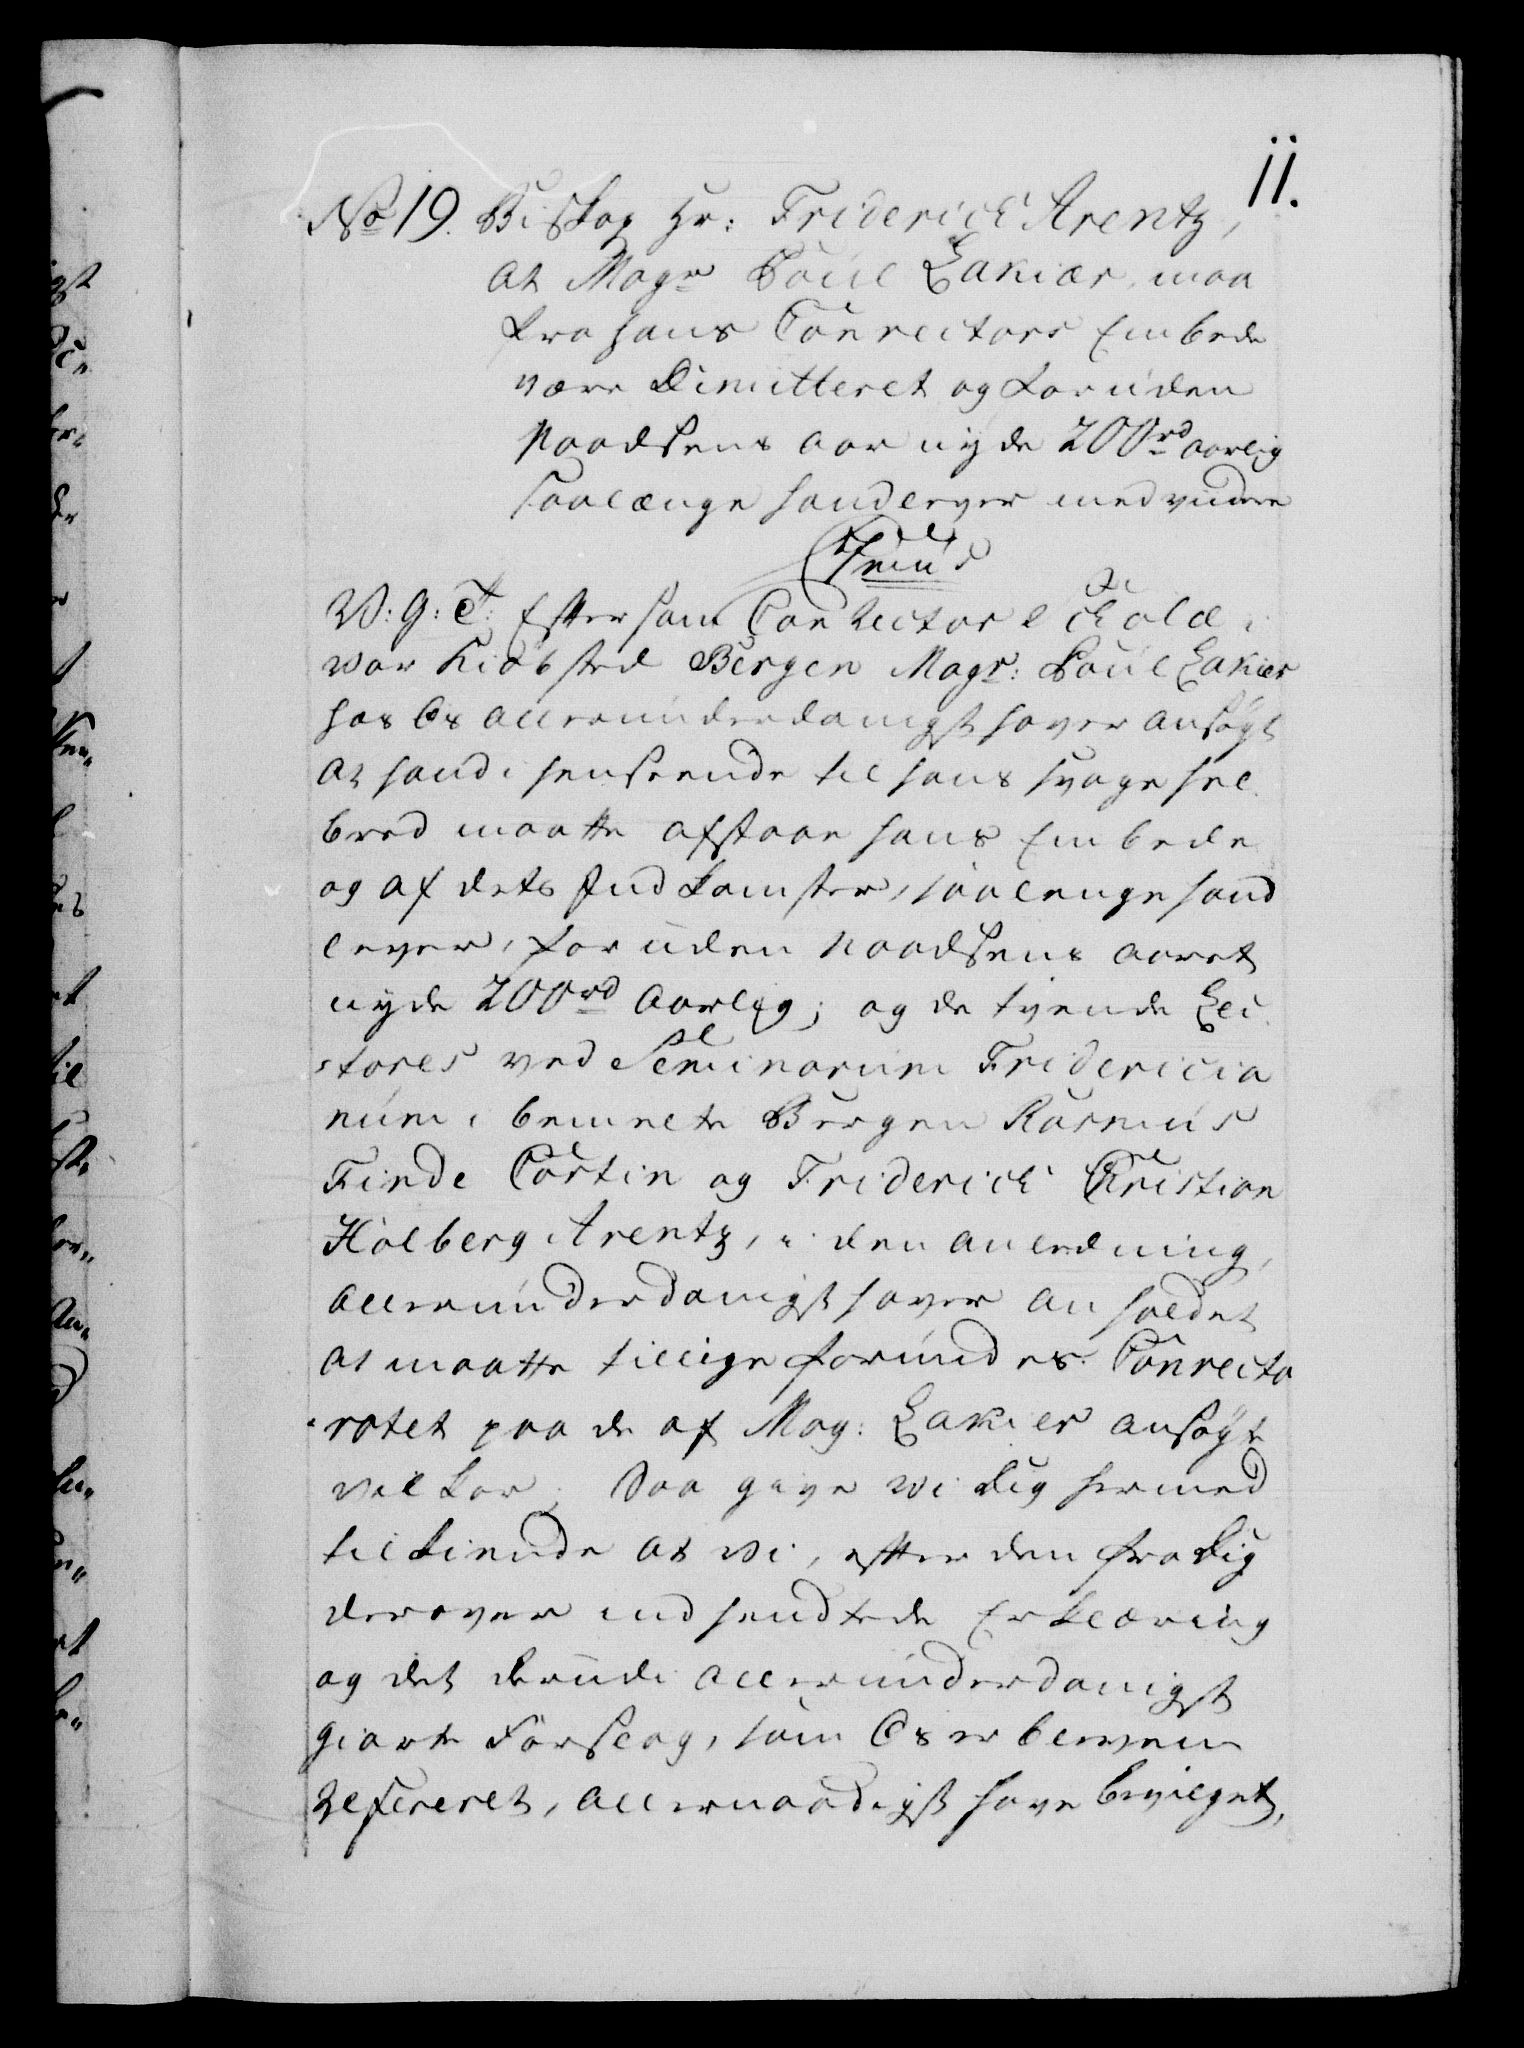 11.
No 19. Biskop Hr: Friderich Arentz,
at Magr Poul Lakier maa
fra hans Conrectors Embede
være Dimitteret og foruden
Naadsens aar nyde 200rd aarlig
saalænge hand lever med videre
V: G: T: Eftersom Conrector Scholæ i
vor Kiøbsted Bergen Magr: Poul Lakier
hos Os allerunderdanigst haver ansøgt
at hand i henseende til hans svage hel
bred maatte afstaae hans Embede
og af dets Indkomster, saalenge hand
lever, foruden Naadsens aaret
nyde 200rd Aarlig; og de tvende Lec
tores ved Seminarium Fridericia
num i bemelte Bergen Rasmus
Finde Costin og Friderich Christian
Holberg Arentz, i den anledning,
allerunderdanigst haver anholdet
at maatte tillige forundes Conrecto
ratet paa de af Mag: Lakier ansøgte
vilkor; Saa give vi Dig hermed
tilkiende at vi, efter den fra Dig
derover indsendte Erklæring
og det derudi allerunderdanigst
giorte Forslag, som Os er bleven
refereret, allernaadigst have bevilget,